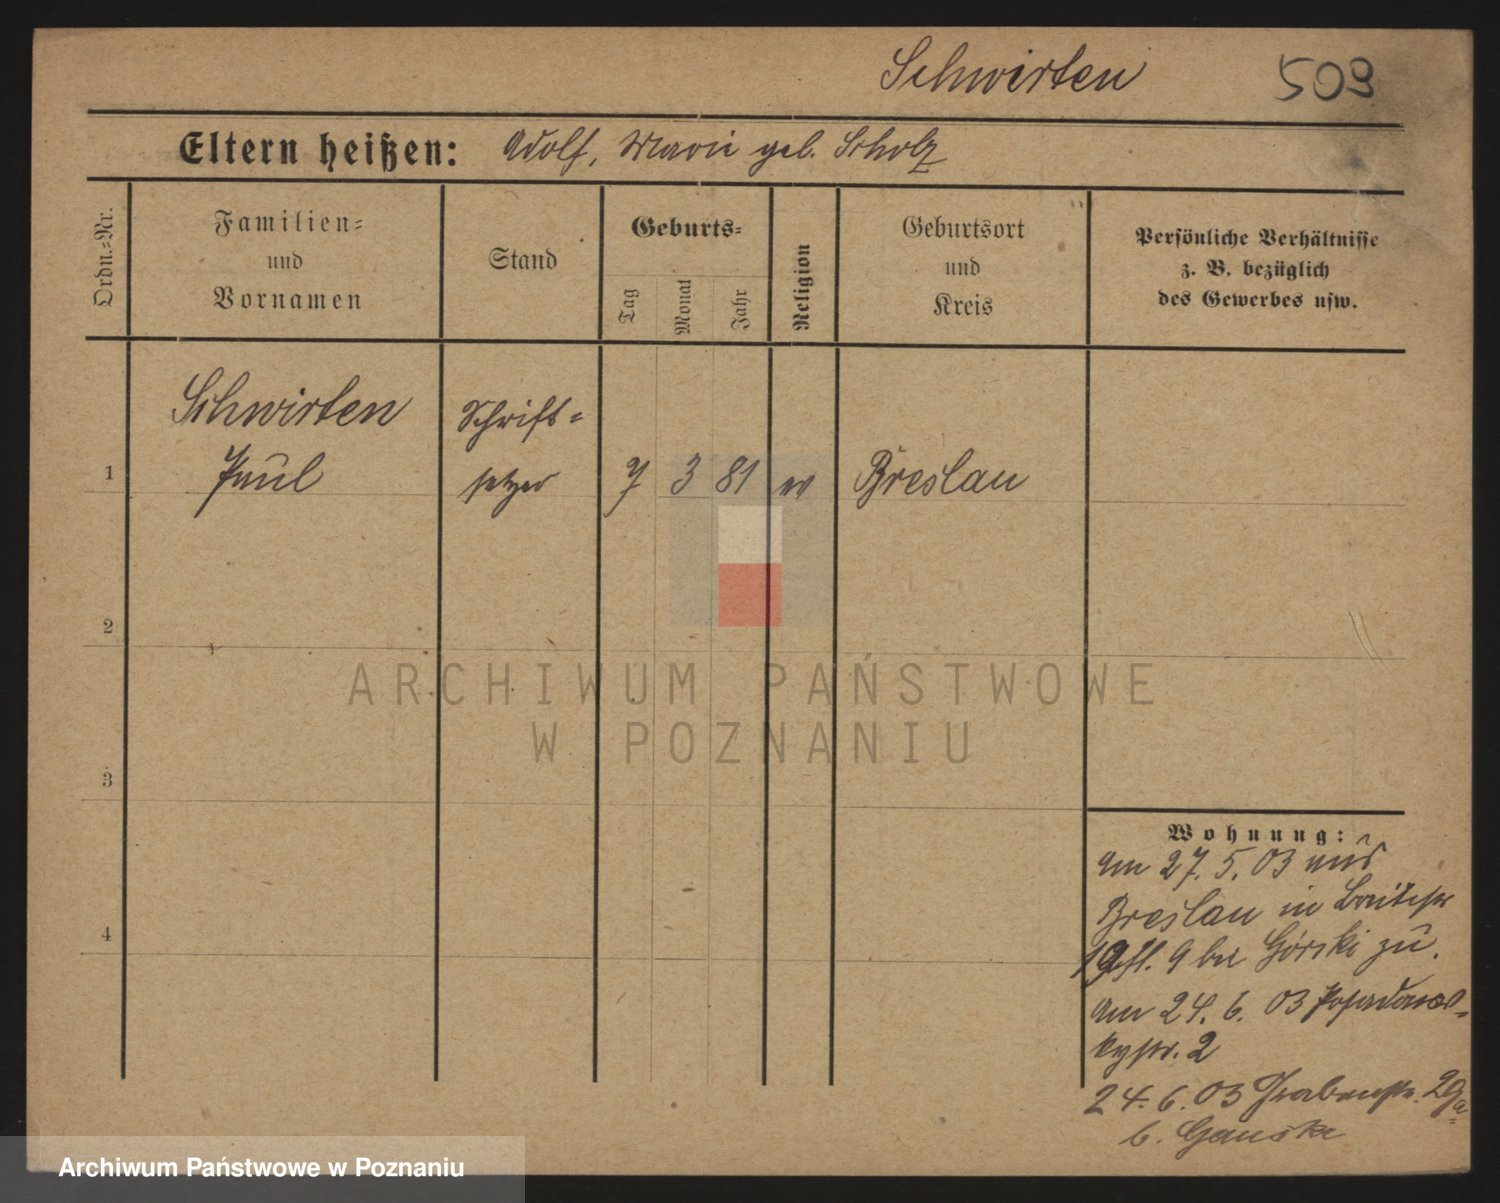 Schwirten 503
Eltern heißen: Adolf, Marie geb. Scholz
Ordn.=Nr.
Familien=
und
Vornamen
Stand
Geburts=
Tag
Monat
Jahr
Religion
Geburtsort
und
Kreis
Persönliche Verhältnisse
z. B. bezüglich
des Gewerbes usw.
Schwirten Schrift=
1 Paul setzer 7 3 81 ev Breslau
2
3
4
Wohnung:
Am 27. 5. 03 aus
Breslau in Breitestr
9 bei Górski zu.
Am 24. 6. 03 Posadows=
kystr. 2
24. 6. 03 Grabenstr.
b. Ganske
ARCHIWUM PAŃSTWOWE
W POZNANIU
Archiwum Państwowe w Poznaniu